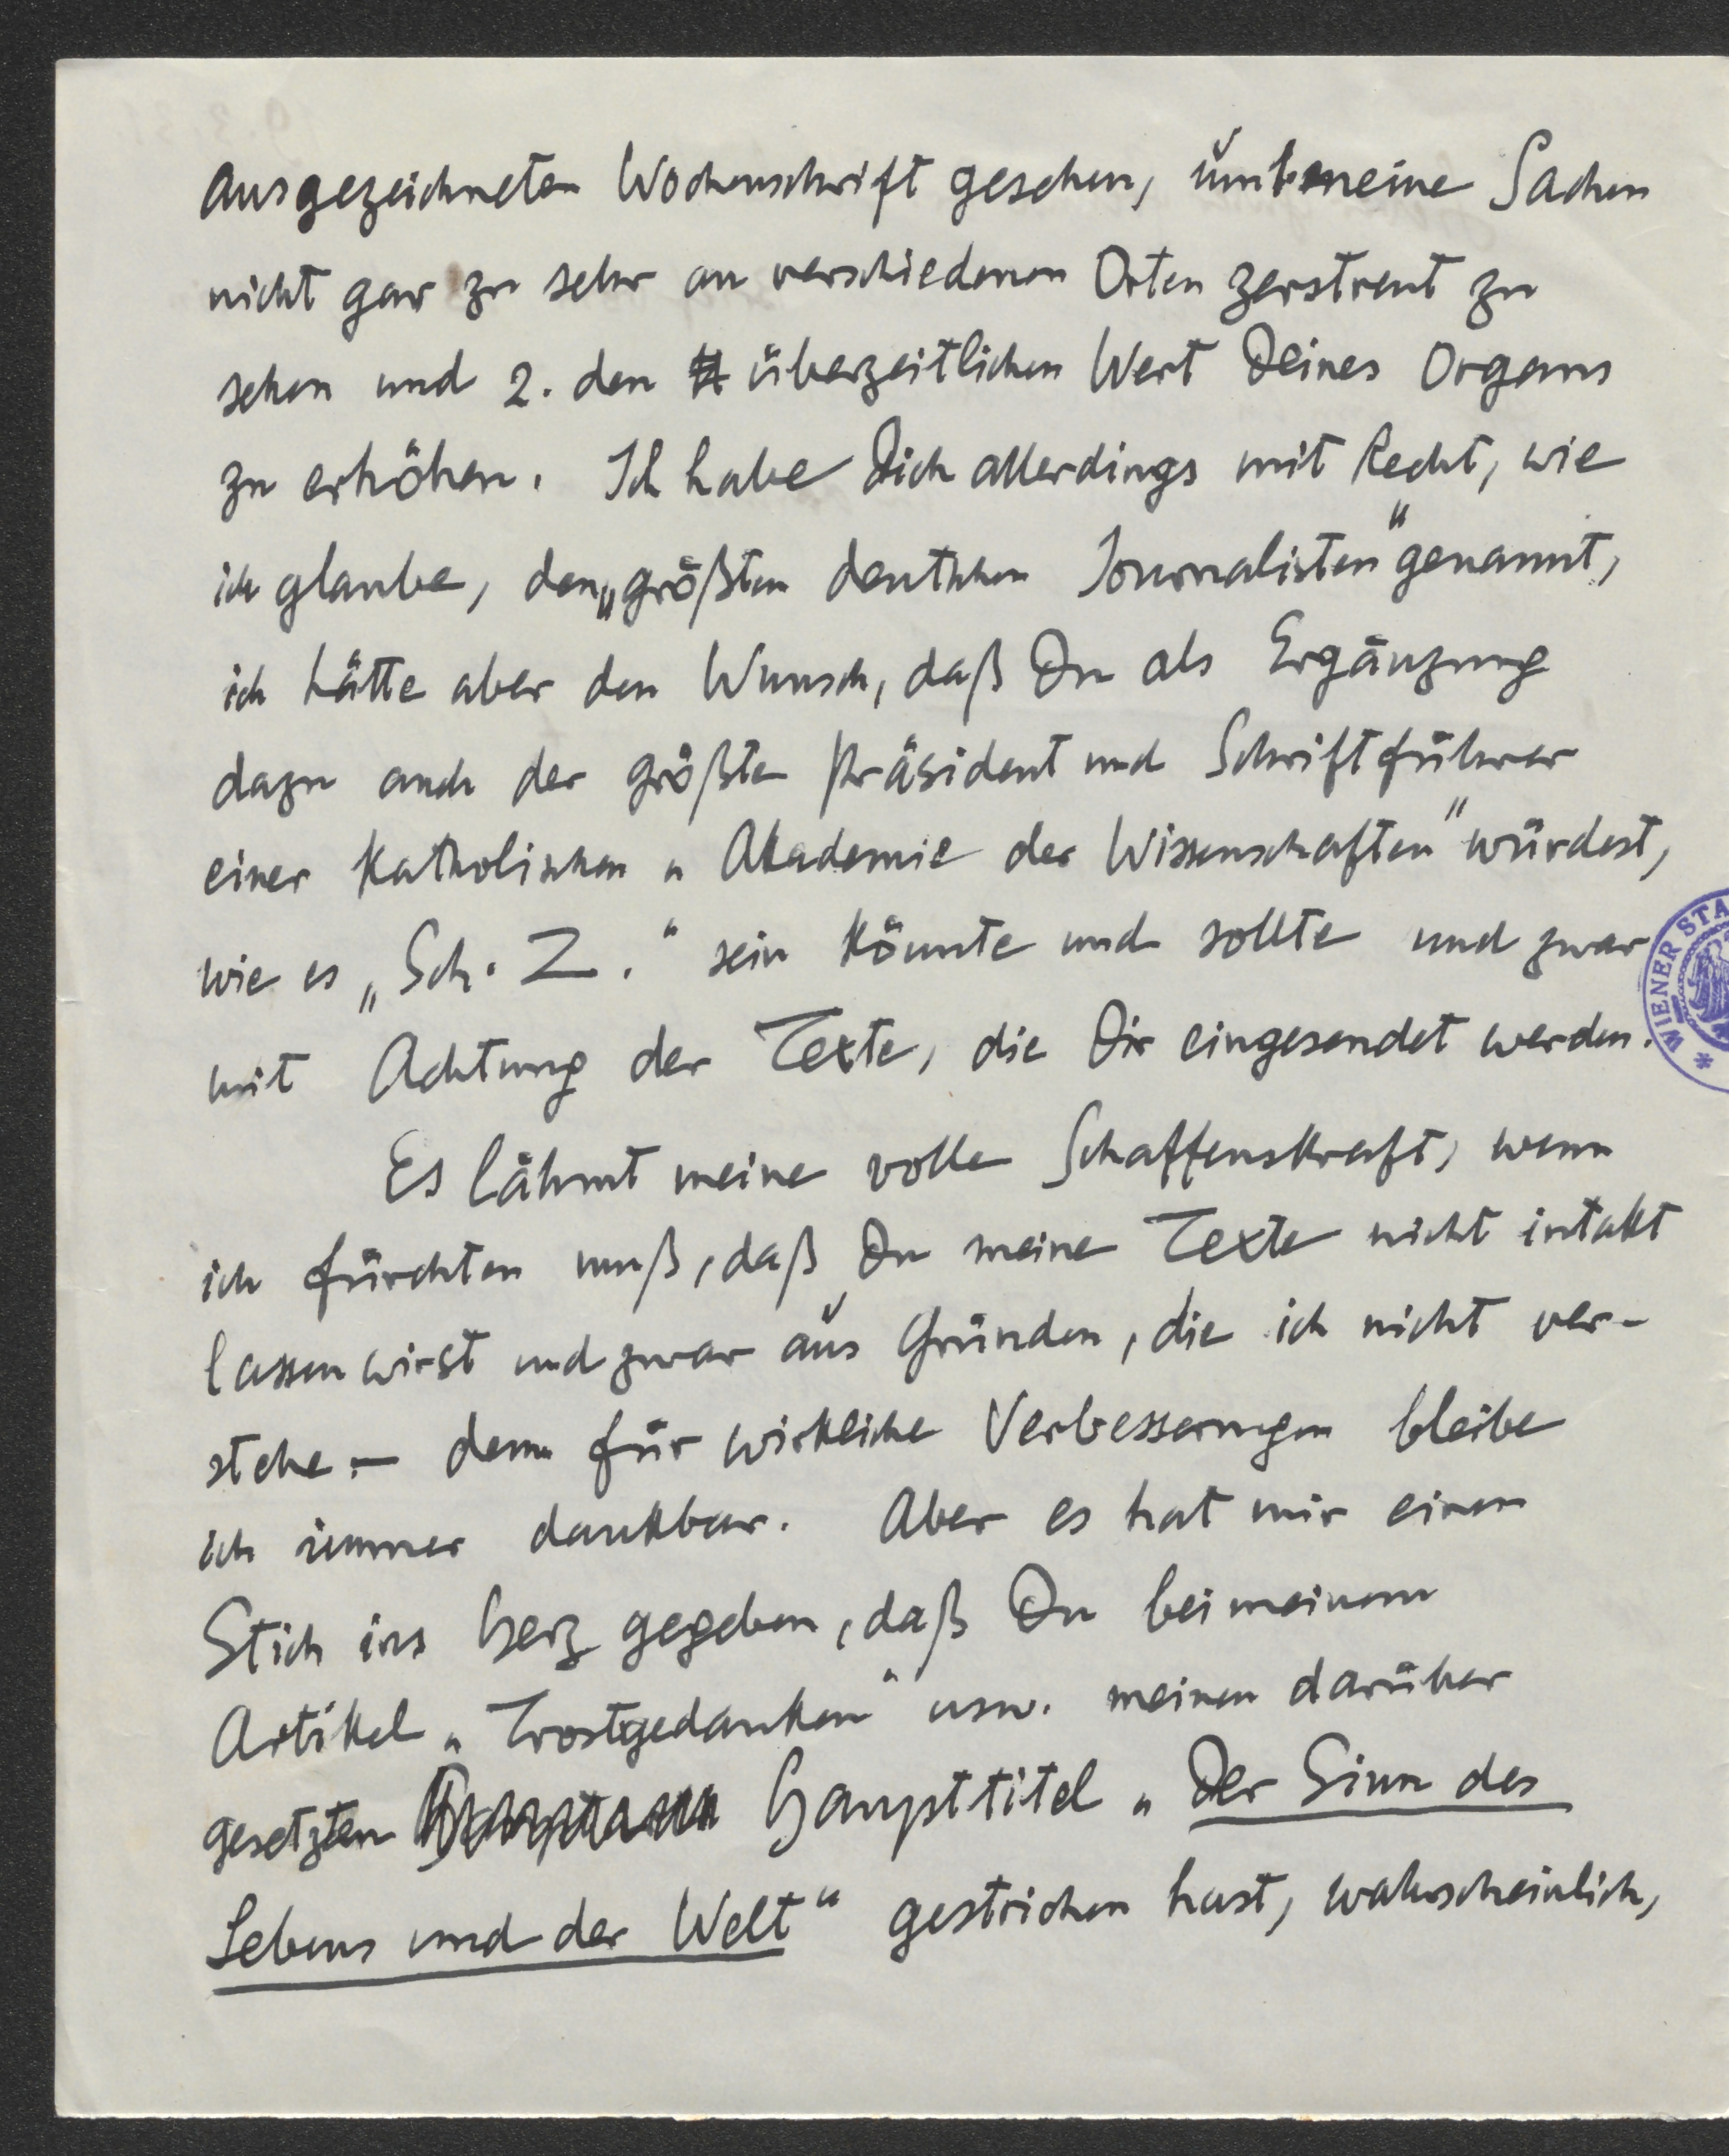 ausgezeichneten Wochenschrift gesehen, um meine Sachen
nicht gar zu sehr an verschiedenen Orten zerstreut zu
sehen und 2. den überzeitlichen Wert Deines Organs
zu erhöhen. Ich habe Dich allerdings mit Recht, wie
ich glaube, den „größten deutschen Journalisten“ genannt,
ich hätte aber den Wunsch, daß Du als Ergänzung
dazu auch der größte Präsident und Schriftführer
einer Katholischen „Akademie der Wissenschaften“ würdest,
wie es „Sch. Z.“ sein könnte und sollte und zwar
mit Achtung der Texte, die Dir eingesendet werden.
Es lähmt meine volle Schaffenskraft, wenn
ich fürchten muß, daß Du meine Texte nicht intakt
lassen wirst und zwar aus Gründen, die ich nicht ver-
stehe – denn für wirkliche Verbesserungen bleibe
ich immer dankbar. Aber es hat mir einen
Stich ins Herz gegeben, daß Du bei meinem
Artikel „Trostgedanken“ usw. meinen darüber
gesetzten Haupttitel „Der Sinn des
Lebens und der Welt“ gestrichen hast, wahrscheinlich,
* WIENER STA